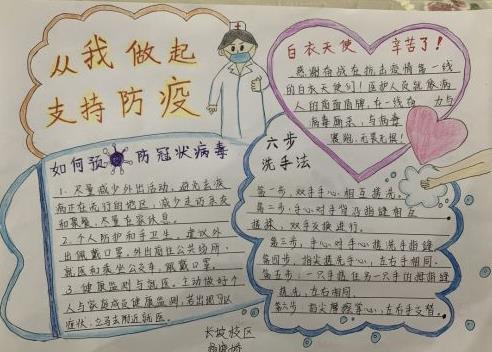 从我做起
支持防疫
白衣天使 辛苦了!
感谢奋战在抗击疫情第一线
的白衣天使们!医护人员就像病
人的
在一线
力与
病毒厮杀,与病毒
无畏无惧!
如何预防冠状病毒
1.尽量减少外出活动。避免去疾
病正在流行的地区,减少走访亲友
和聚餐,尽量在家休息。
2.个人防护和手卫生。建议外
出佩戴口罩。外出前往公共场所、
就医和乘坐公交车,佩戴口罩。
3.健康监测与就医。主动做好个
人与家庭成员健康监测,若出现可以
症状,立马去附近就医。
六步
洗手法
第一步,双手手心相互搓洗。
第二步,手心对手背沿指缝相互
搓揉,双手交换进行。
第三步,手心对手心搓洗手指缝
第四步,指尖搓洗手心,左右手相同。
第五步,一只手握住另一只手的拇指
搓洗,左右相同。
第六步,指尖摩擦掌心,左右手支替。
长坡校区